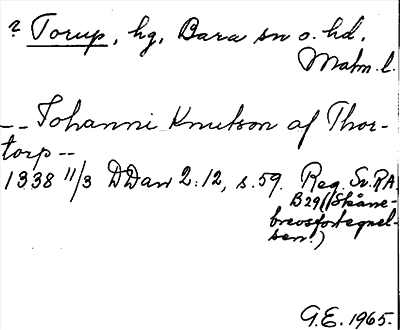 ? Torup, hg, Bara sn o. hd.
Malm. l.
-- Johanni Knutson af Thor-
torp --
1338 11/3 DDan 2:12, s. 59. Reg. Sv. RA
B29 (Skåne-
brevsfortegnel-
sen.)
G.E. 1965.